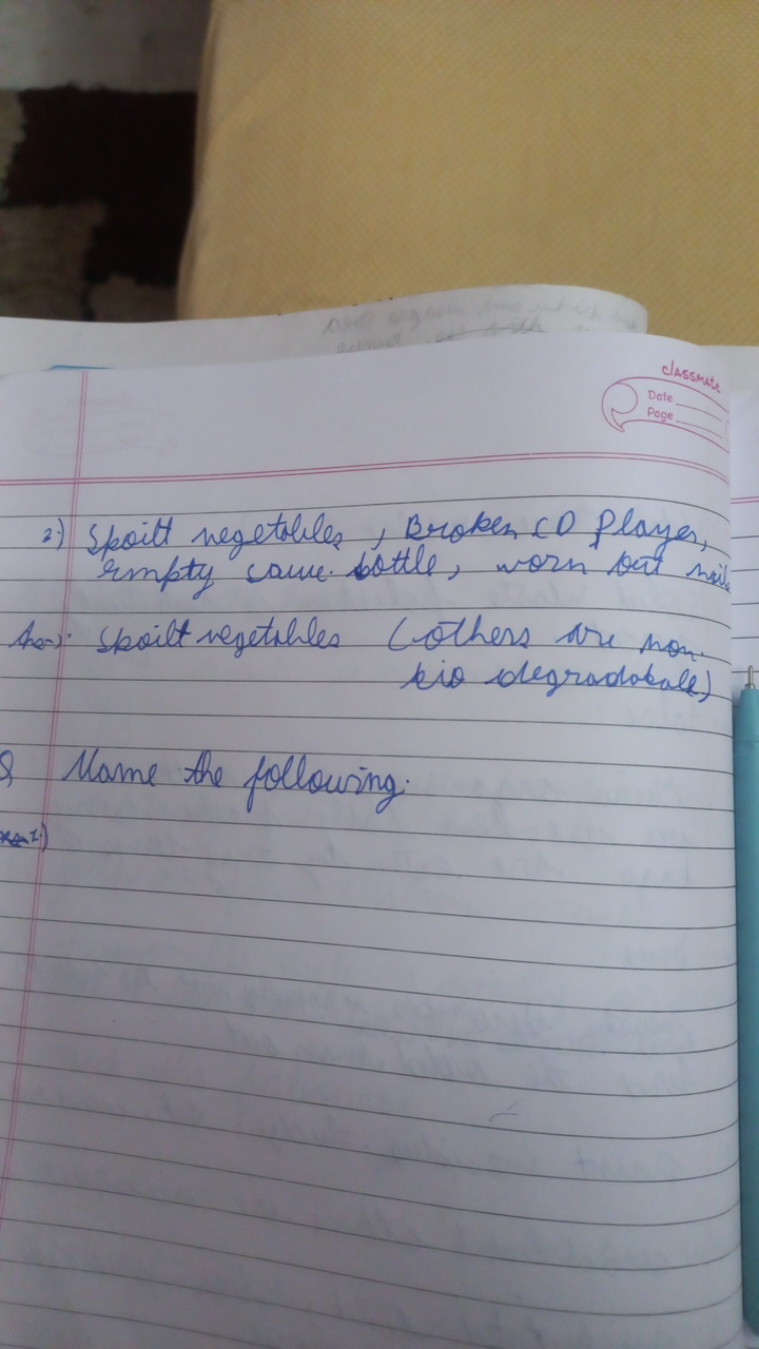 classmate
Date
Page
2.) Spoilt vegetables, Broken CD Player,
empty sauce bottle, worn out
Ans-). Spoilt vegetables (others are non-
bio degradabale)
Q Name the following.